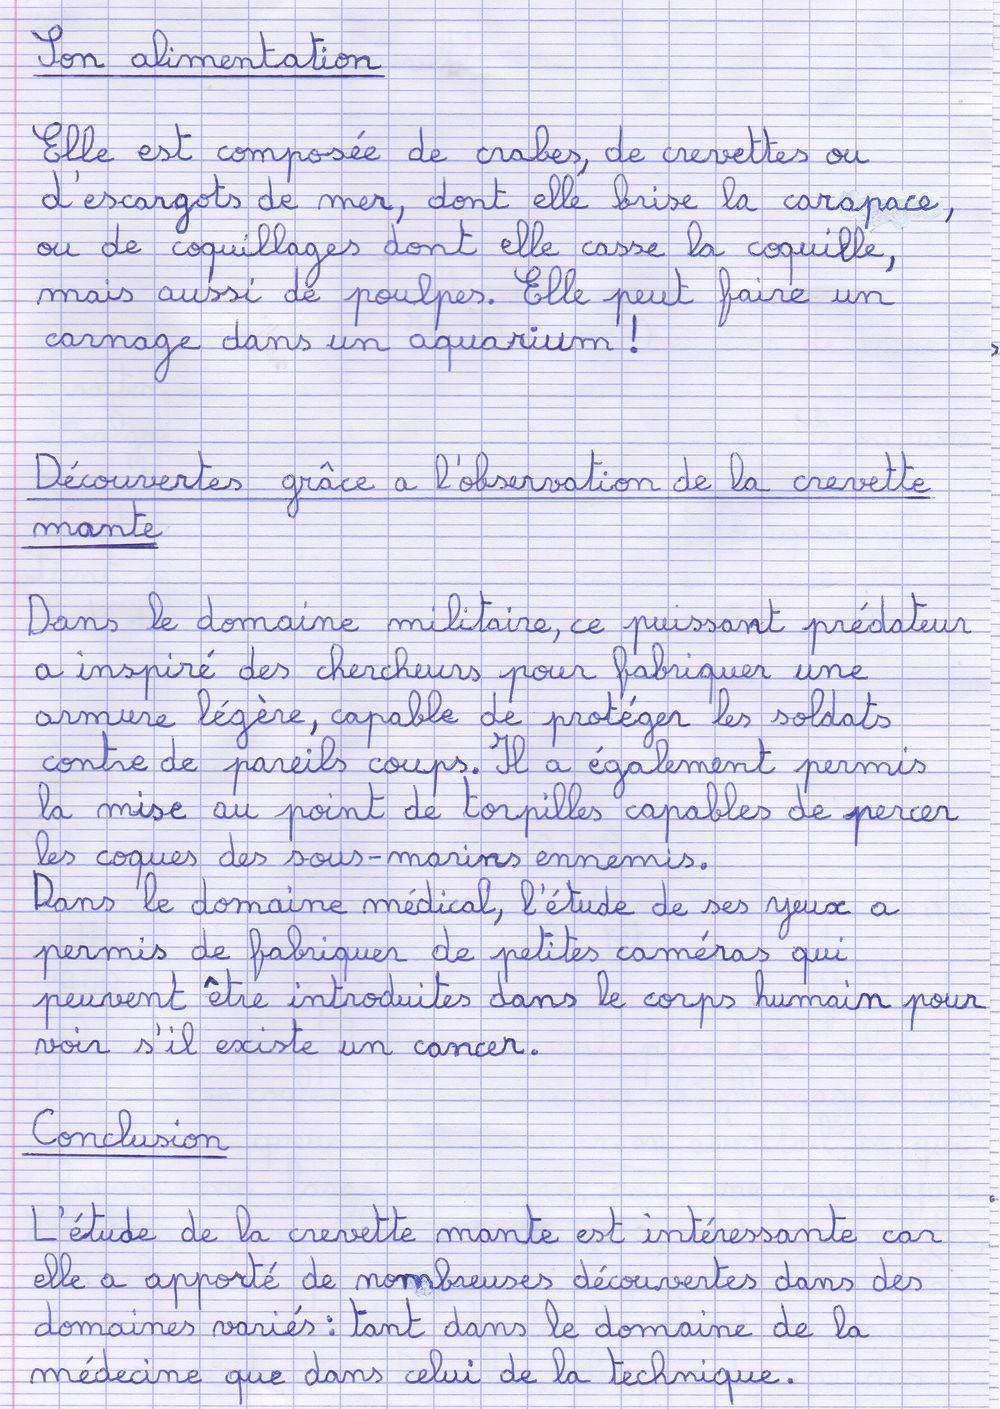 Son alimentation
Elle est composée de crabes, de crevettes ou
d'escargots de mer, dont elle brise la carapace,
ou de coquillages dont elle casse la coquille,
mais aussi de poulpes. Elle peut faire un
carnage dans un aquarium !
Découvertes grâce a l'observation de la crevette
mante
Dans le domaine militaire, ce puissant prédateur
a inspiré des chercheurs pour fabriquer une
armure légère, capable de protéger les soldats
contre de pareils coups. Il a également permis
la mise au point de torpilles capables de percer
les coques des sous-marins ennemis.
Dans le domaine médical, l'étude de ses yeux a
permis de fabriquer de petites caméras qui
peuvent être introduites dans le corps humain pour
voir s'il existe un cancer.
Conclusion
L'étude de la crevette mante est intéressante car
elle a apporté de nombreuses découvertes dans des
domaines variés : tant dans le domaine de la
médecine que dans celui de la technique.